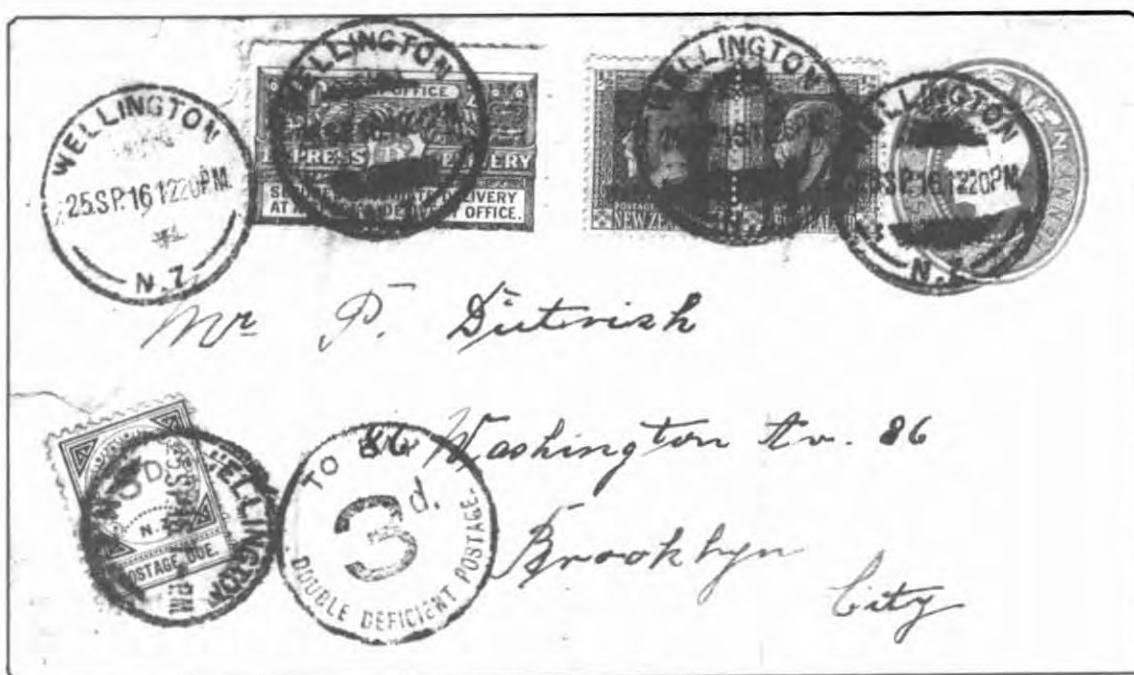 WELLINGTON
25.SP.16 1220PM
N.Z.
WELLINGTON
OFFICE
EXPRESS DELIVERY
DELIVERY
AT DELIVERY OFFICE.
WELLINGTON
POSTAGE
NEW ZEALAND
WELLINGTON
SP.16 1220PM
N.Z.
Mr P. Dieterish
86 Washington Av. 86
Brooklyn
City
WELLINGTON
3D.
N.Z.
POSTAGE DUE.
TO PAY
3d.
DOUBLE DEFICIENT POSTAGE.